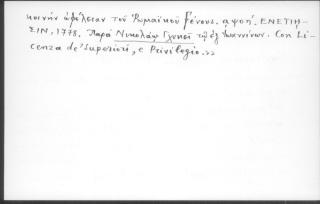 κοινήν ὠφέλειαν τοῦ Ῥωμαϊκοῦ Γένους. αψοή. ΕΝΕΤΙΗ-
ΣΙΝ, 1778. Παρά Νικολάῳ Γλυκεῖ τῷ ἐξ Ἰωαννίνων. Con Li-
cenza de' Superiori, e Privilegio.>>